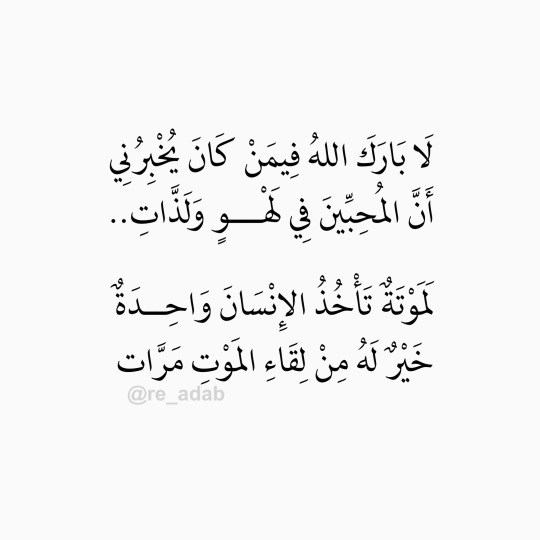 لَا بَارَكَ اللهُ فِيمَنْ كَانَ يُخْبِرُنِي
أَنَّ المُحِبِّينَ فِي لَهْـــوٍ وَلَذَّاتِ..
لَمَوْتَةٌ تَأْخُذُ الإِنْسَانَ وَاحِـــدَةٌ
خَيْرٌ لَهُ مِنْ لِقَاءِ المَوْتِ مَرَّات
@re_adab